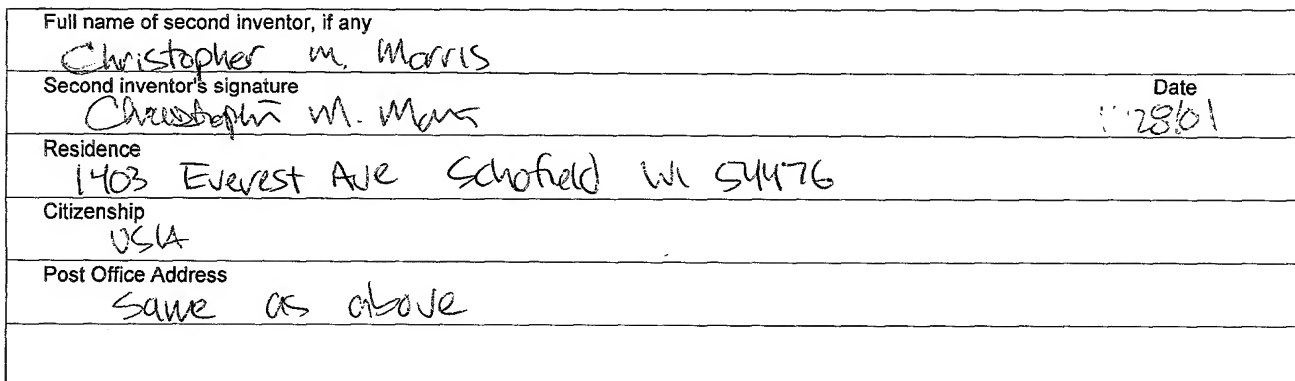 Full name of second inventor, if any
Christopher M. Morris
Second inventor's signature Date
Christopher M. Morris
Residence
1403 Everest Ave Schofield WI 54476
Citizenship
USA
Post Office Address
Same as above